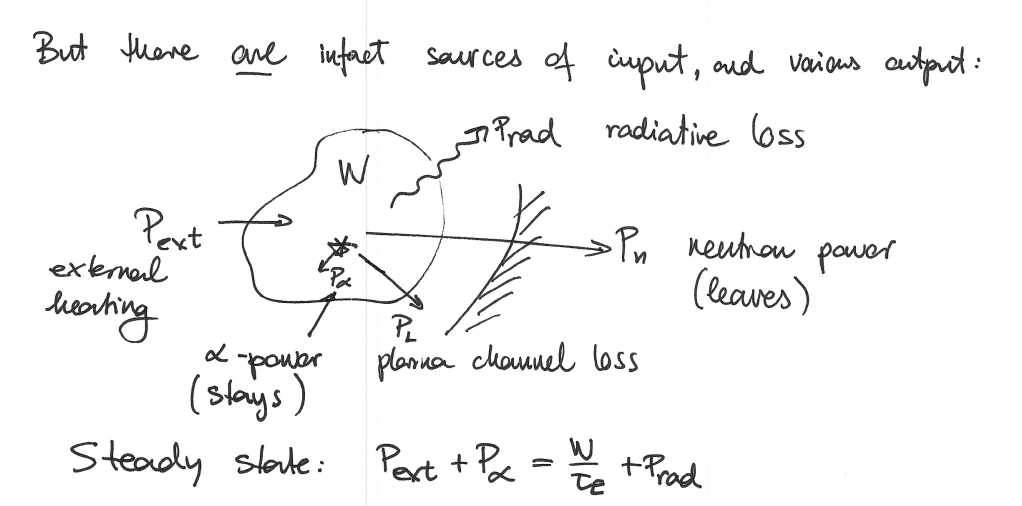 But there are infact sources of input, and vaious output:
W
Prad radiative loss
Pext
external
heating
Pα
Pn neutron power
(leaves)
PL
α-power
(stays)
plasma channel loss
Steady state: Pext + Pα = W/τE + Prad